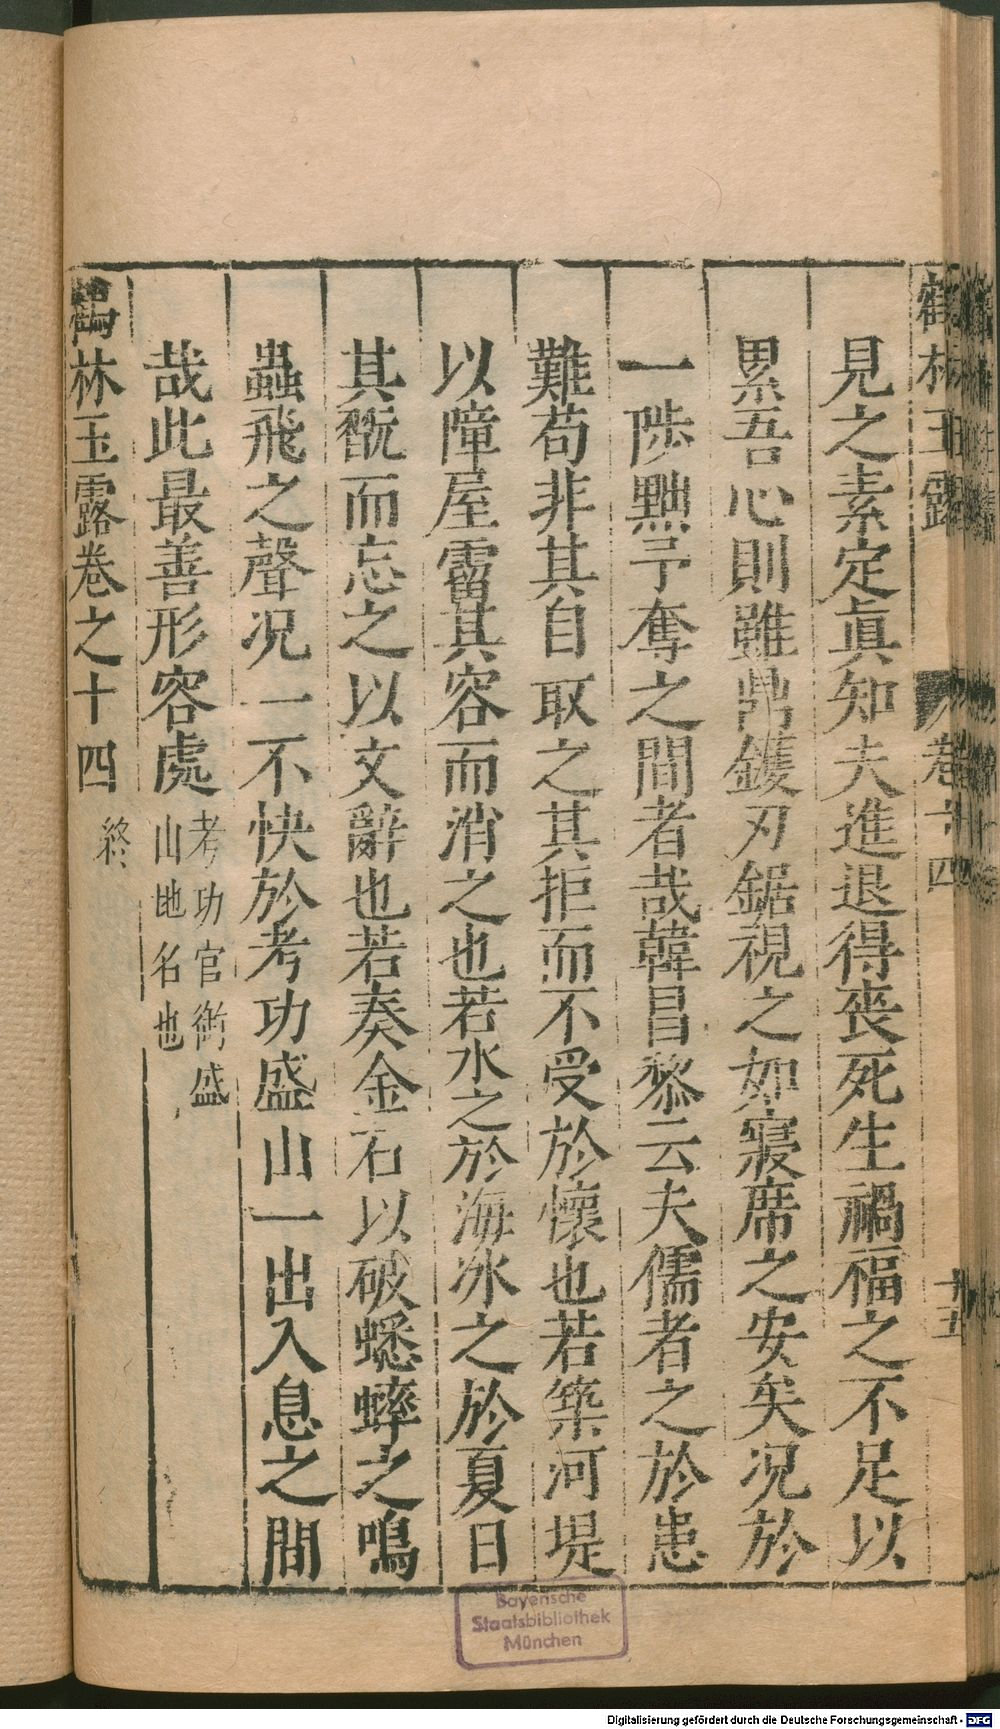 鶴林玉露 卷十四 十五
見之素定眞知夫進退得丧死生禍福之不足以
累吾心則雖鼎鑊刃鋸視之如寢席之安矣况於
一陟黜予奪之間者哉韓昌黎云夫儒者之於患
難苟非其自取之其拒而不受於懷也若築河堤
以障屋霤其容而消之也若水之於海冰之於夏日
其翫而忘之以文辭也若奏金石以破蟋蟀之鳴
蟲飛之聲况一不快於考功盛山一出入息之間
哉此最善形容處考功官衔盛
山地名也
鶴林玉露卷之十四終
Bayerische
Staatsbibliothek
München
Digitalisierung gefördert durch die Deutsche Forschungsgemeinschaft - DFG